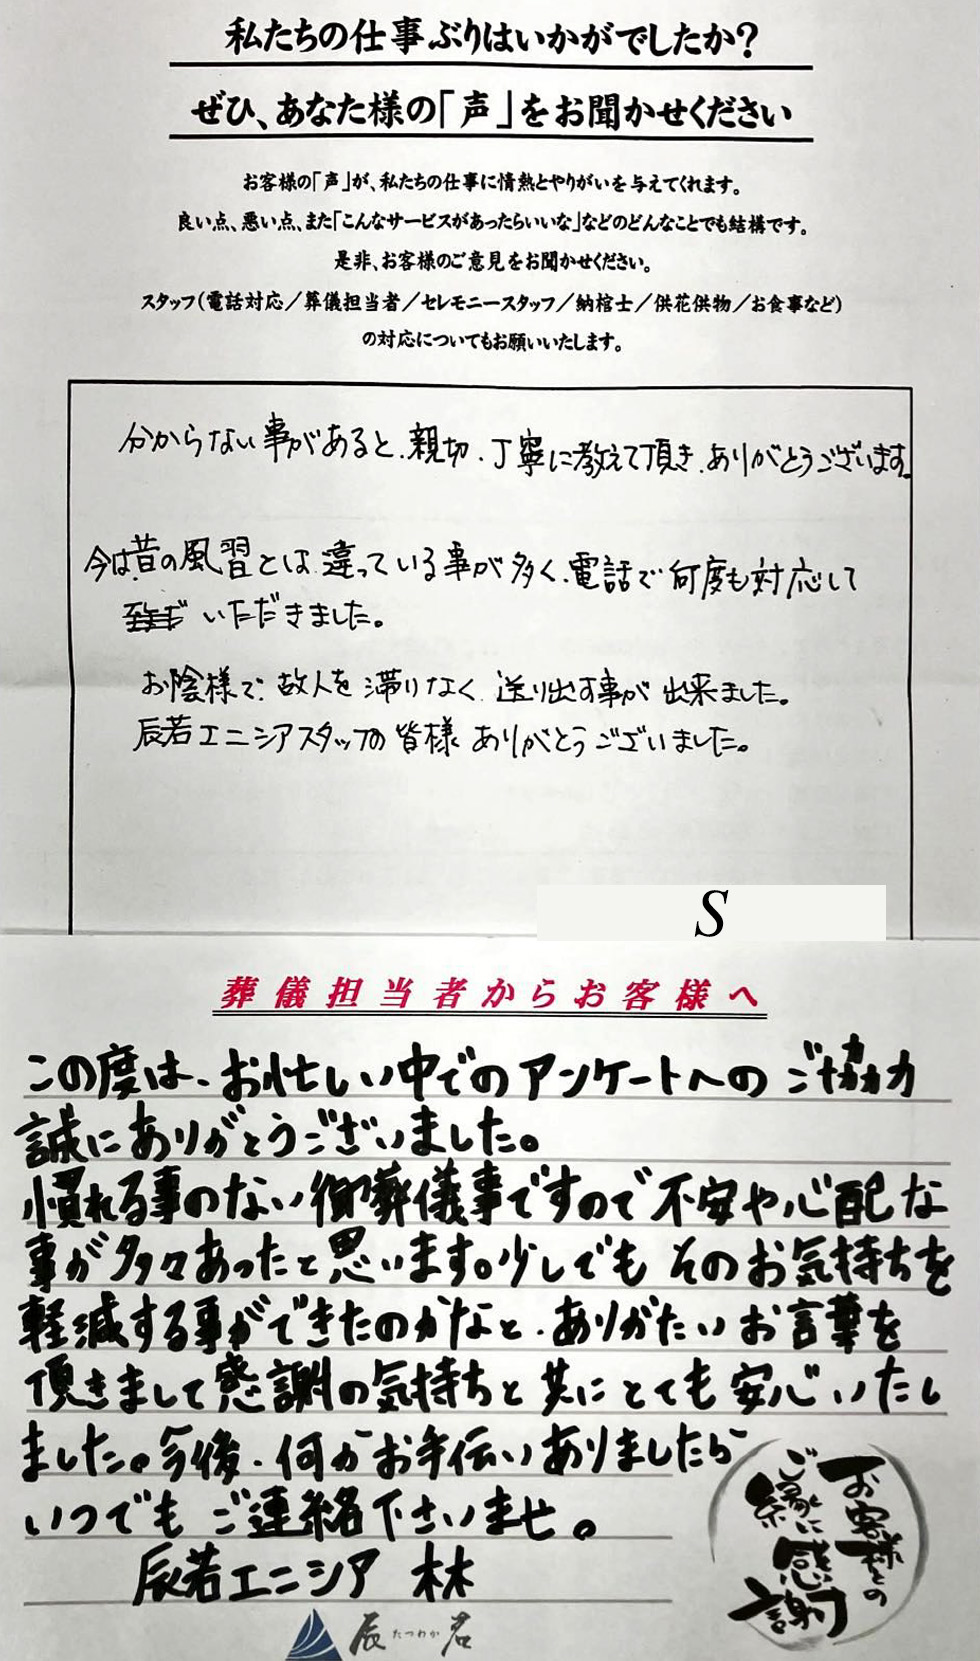 私たちの仕事ぶりはいかがでしたか?
ぜひ、あなた様の「声」をお聞かせください
お客様の「声」が、私たちの仕事に情熱とやりがいを与えてくれます。
良い点、悪い点、また「こんなサービスがあったらいいな」などのどんなことでも結構です。
是非、お客様のご意見をお聞かせください。
スタッフ(電話対応/葬儀担当者/セレモニースタッフ/納棺士/供花供物/お食事など)
の対応についてもお願いいたします。
分からない事があると、親切、丁寧に教えて頂き、ありがとうございます。
今は、昔の風習とは違っている事が多く、電話で何度も対応して
いただきました。
お陰様で、故人を滞りなく、送り出す事が出来ました。
辰若エニシアスタッフの皆様ありがとうございました。
S
葬儀担当者からお客様へ
この度は、お忙しい中でのアンケートへのご協力
誠にありがとうございました。
慣れる事のない御葬儀事ですので不安や心配な
事が多々あったと思います。少しでもそのお気持ちを
軽減する事ができたのかなと、ありがたいお言葉を
頂きまして感謝の気持ちと共にとても安心いたし
ました。今後、何かお手伝いありましたら
いつでもご連絡下さいませ。
辰若エニシア 林
お客様との
ご縁に感謝
辰たつわか若